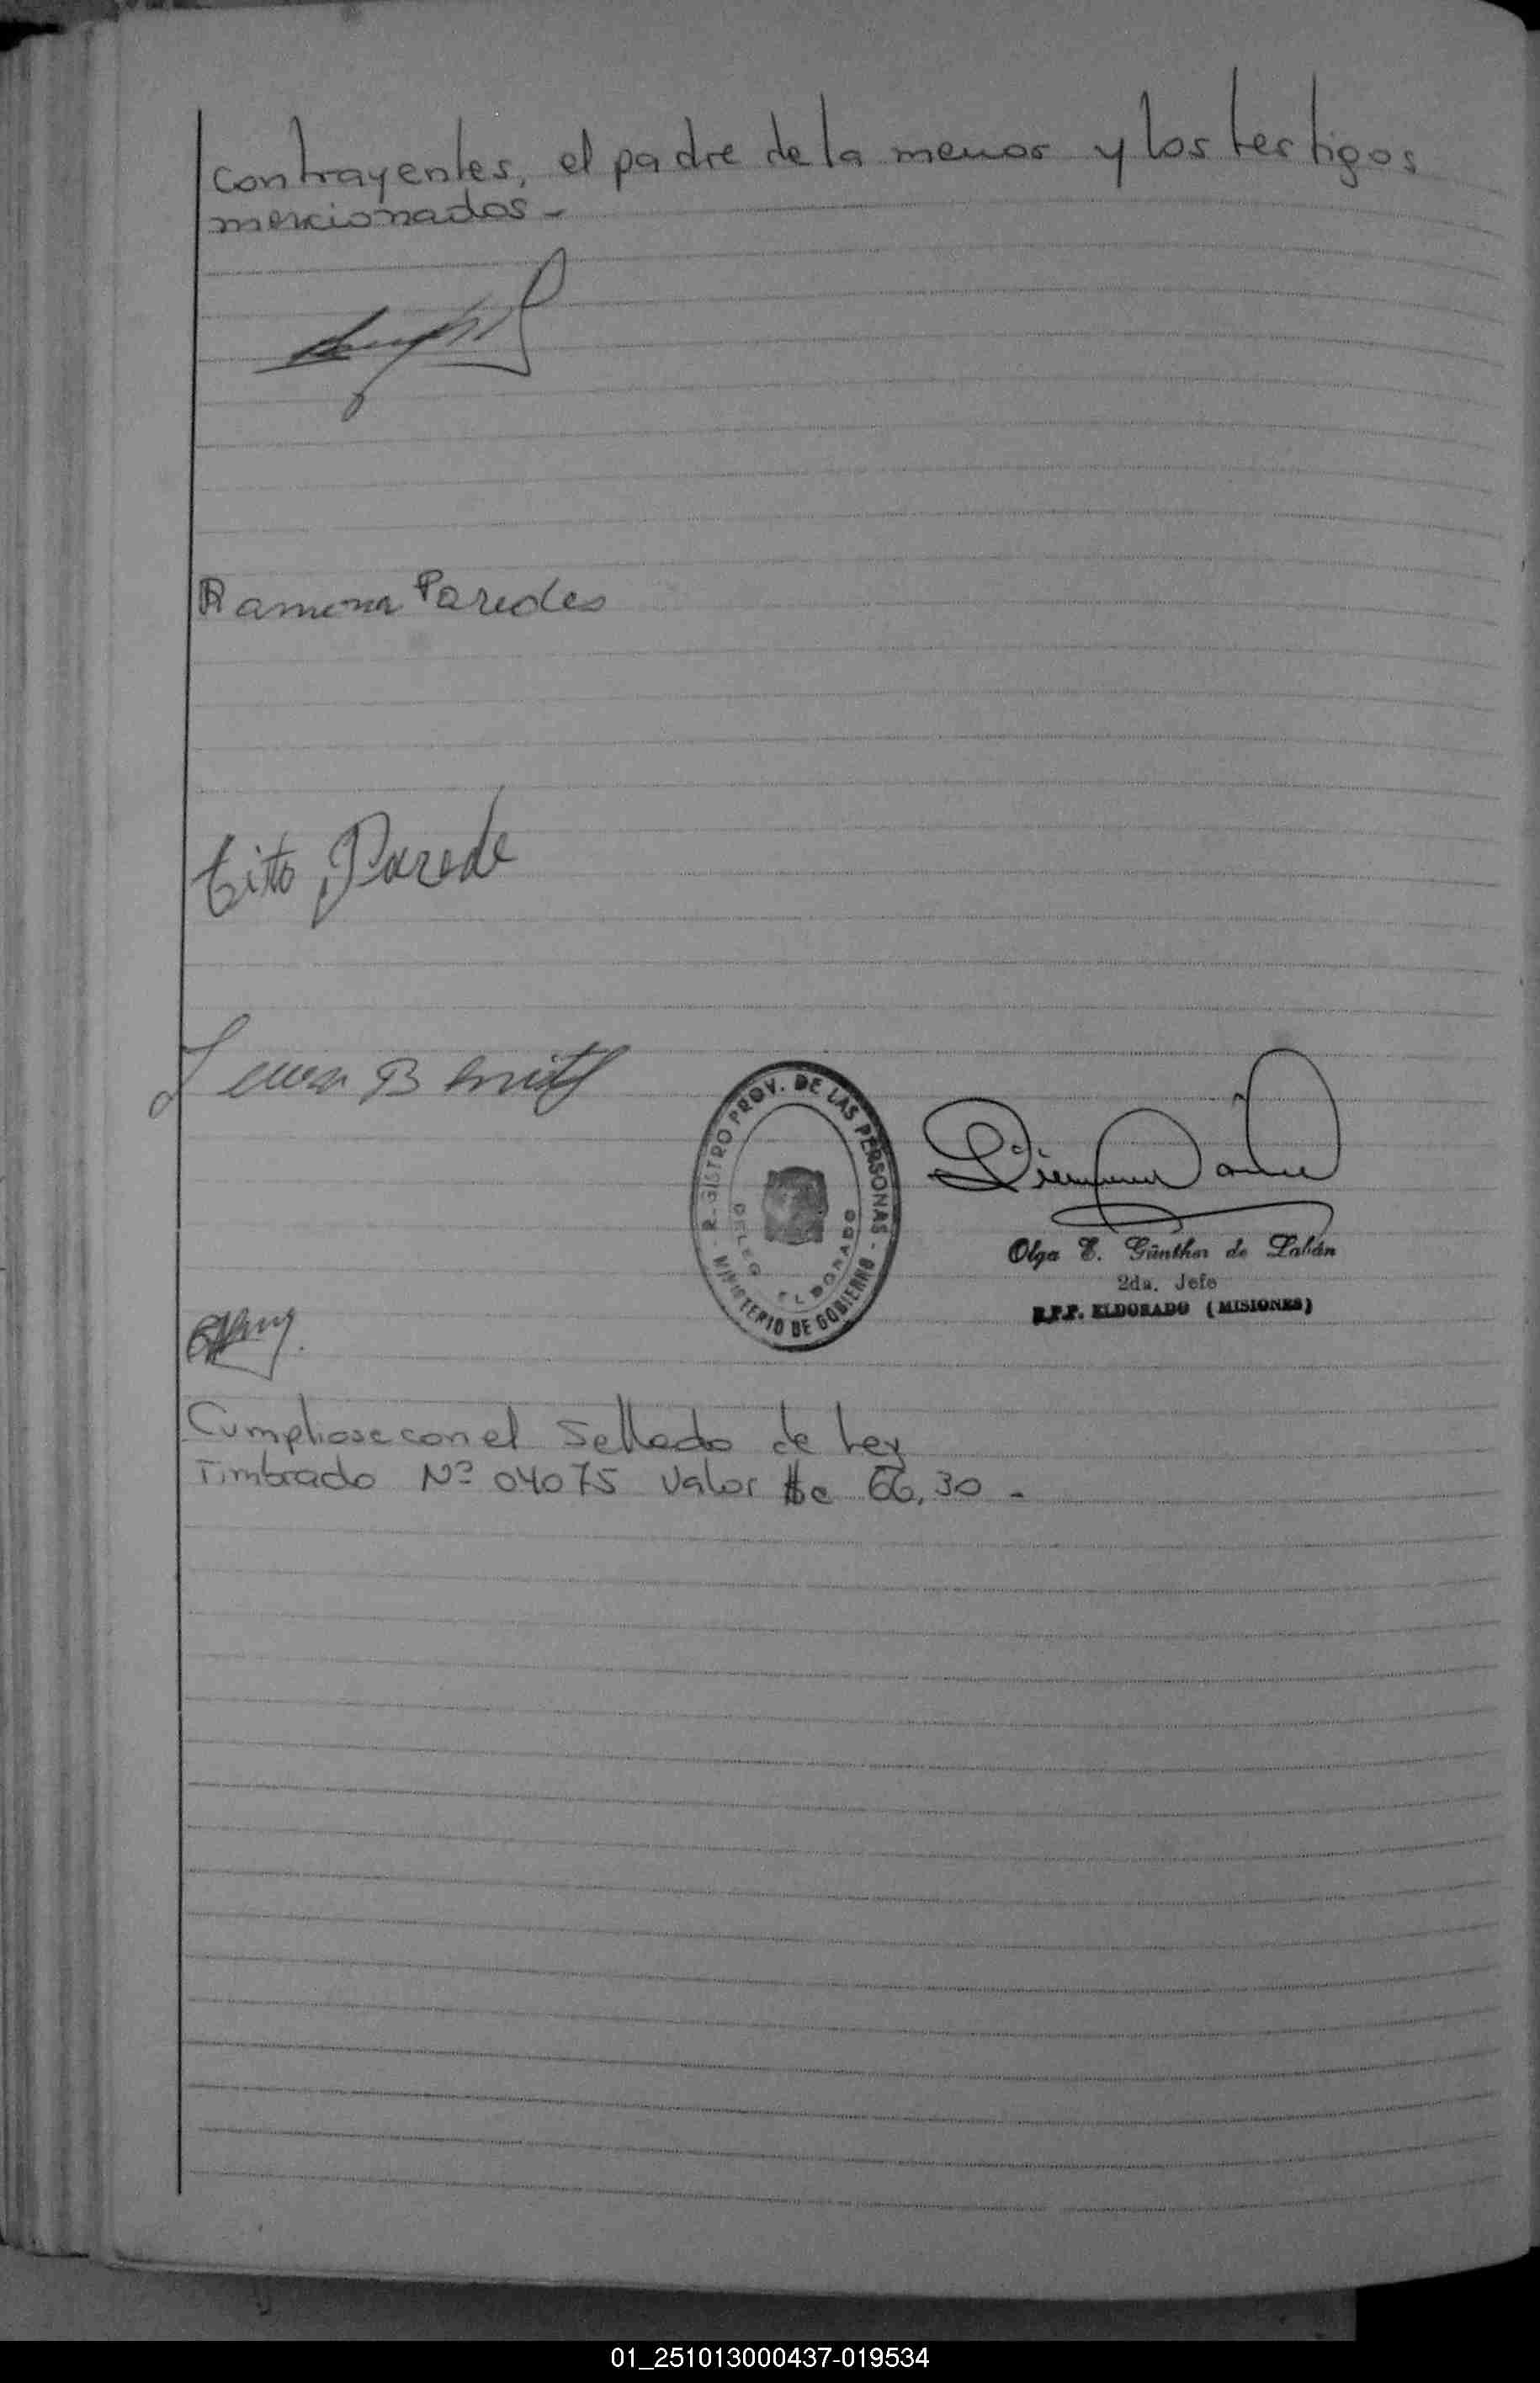 contrayentes, el padre de la menor y los testigos
mencionados -
Ramona Paredes
Tito Parede
REGISTRO PROV. DE LAS PERSONAS
MINISTERIO DE GOBIERNO
DELEG ELDORADO
Olga E. Günther de Labán
2da. Jefe
R.P.P. ELDORADO (MISIONES)
Cumpliose con el Sellado de Ley
Timbrado Nº 04075 Valor $c 66,30 -
01_251013000437-019534